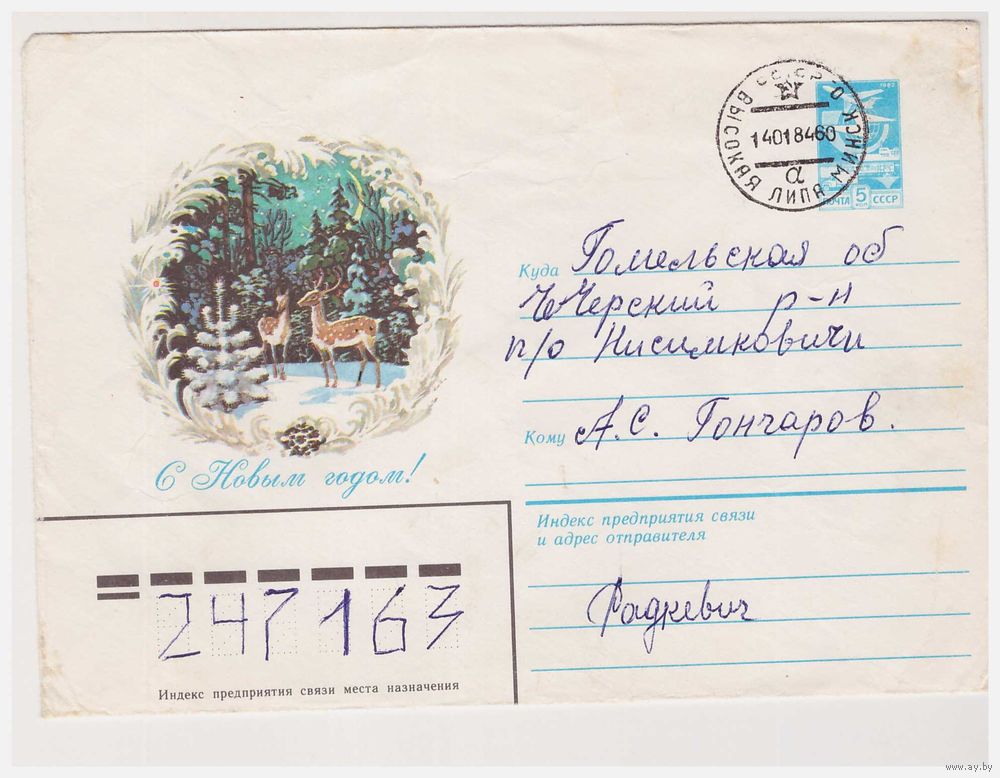 СССР
МИНСК О.
ВЫСОКАЯ ЛИПА
14018460
а
1982
ПОЧТА 5 КОП СССР
Куда Гомельская об
Чечерский р-н
п/о Нисимковичи
Кому А.С. Гончаров.
С Новым годом!
Индекс предприятия связи
и адрес отправителя
Радкевич
247163
Индекс предприятия связи места назначения
www.ay.by